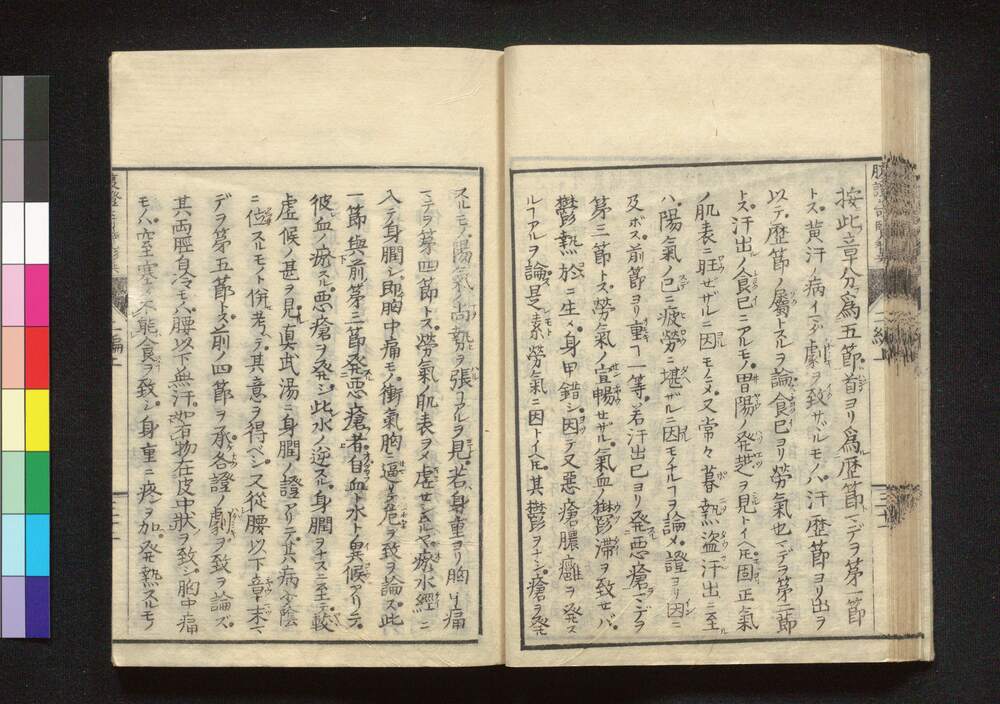 按此章分爲五節首ヨリ爲歴節マデヲ第一節
トス黄汗ノ病イマダ劇ヲ致サヾルモノハ汗歴節ヨリ出ヲ
以テ歴節ノ屬トスルヲ論食已ヨリ勞氣也マデヲ第二節
トス汗出ノ食已ニアルモノ胃陽ノ発越ヲ見トイヘ𪜈固正氣
ノ肌表ニ旺セザルニ因モノニメ又常々暮𤍠盗汗出ニ至
ハ陽氣ノ已ニ疲勞ニ堪ザルニ因モナルヿヲ論メ證ヨリ因ニ
及ボス前節ヨリ重ヿ一等若汗出已ヨリ発悪瘡マデヲ
第三節トス勞氣ノ宣暢セザル氣血ノ欝滞ヲ致セバ
欝熱於ニ生メ身甲錯シ因テ又悪瘡膿癰ヲ発ス
ルヿアルヲ論是素勞氣ニ因トイヘ𪜈其欝ヲナシ瘡ヲ発
スルモノ陽氣ノ尚勢ヲ張ヿアルヲ見若身重ヨリ胸中痛
マデヲ第四節トス勞氣ノ肌表ヲメ虚セシムルヤ瘀水經ニ
入テ身瞤シ即胸中痛モノ衝氣胸ニ逼ルノ危ヲ致ヲ論ズ此
一節與前第三節発悪瘡者自血ト水ト異候アリテ
彼血ノ瘀スル悪瘡ヲ発シ此水ノ逆スル身瞤ヲナスニ至テ較
虚候ノ甚ヲ見眞武湯ニ身瞤ノ證アリテ其病少陰
ニ位スルモノト併考ヘテ其意ヲ得ベシ又從腰以下章末マ
デヲ第五節トス前ノ四節ヲ承各證ノ劇ヲ致ヲ論ズ
其両脛自冷モノハ腰以下無汗如有物在皮中狀ヲ致シ胸中痛
モノハ窒塞シ不能食ヲ致シ身重ニ疼ヲ加発熱スルモノ